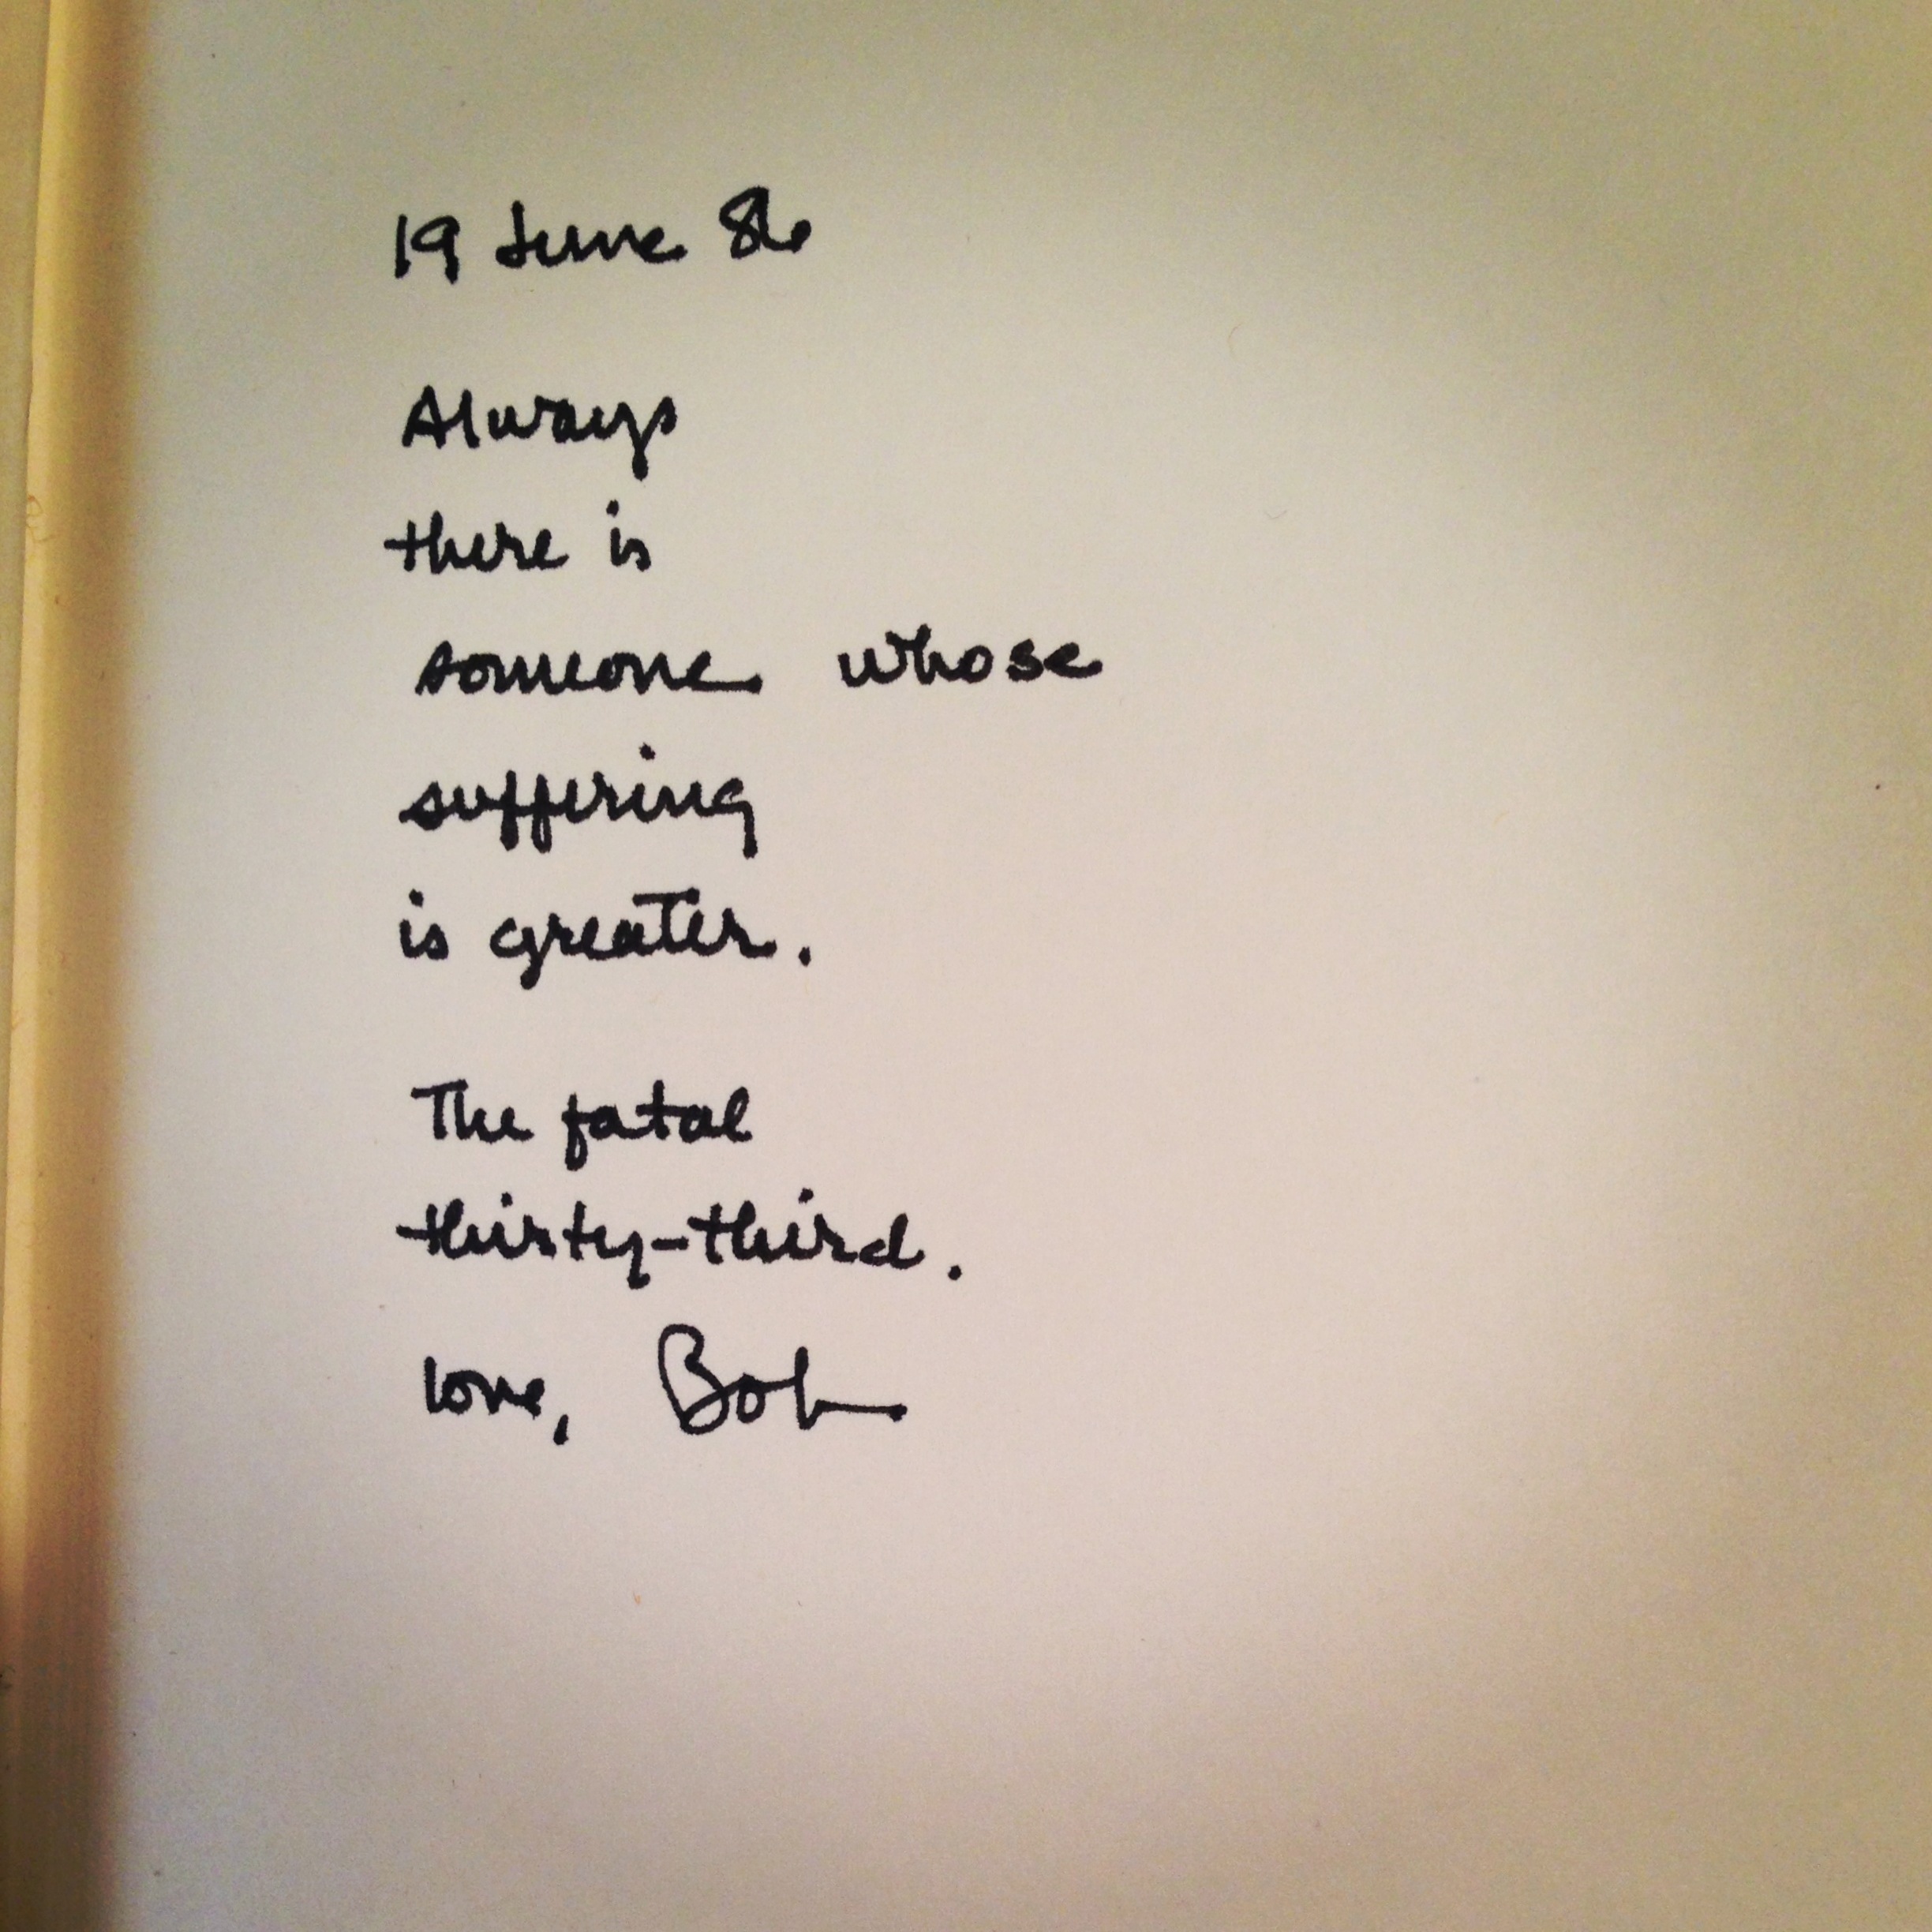 19 June 86
Always
there is
someone whose
suffering
is greater.
The fatal
thirty-third.
love, Bob